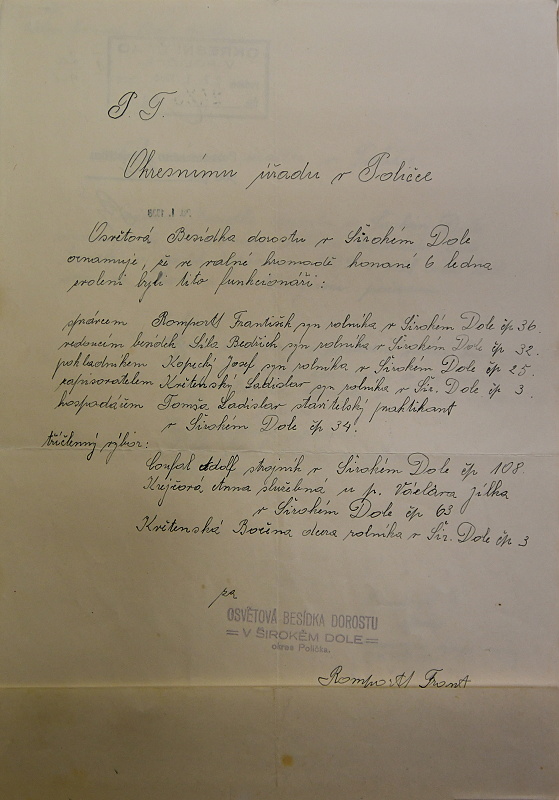 P. T.
Okresnímu úřadu v Poličce
Osvětová Besídka dorostu v Širokém Dole
oznamuje, že ve valné hromadě konané 6. ledna
zvoleni byli tito funkcionáři:
správcem Romportl František syn rolníka v Širokém Dole čp 36.
vedoucím besídek Síla Bedřich syn rolníka v Širokém Dole čp 32.
pokladníkem Kopecký Josef syn rolníka v Širokém Dole čp 25.
zapisovatelem Květenský Ladislav syn rolníka v Šir. Dole čp 3.
hospodářem Tomša Ladislav stavitelský praktikant
v Širokém Dole čp 34.
tříčlenný výbor:
Coufal Adolf strojník v Širokém Dole čp 108.
Krejčová Anna služebná u p. Jílka
v Širokém Dole čp 63
Květenská Božina dcera rolníka v Šir. Dole čp 3
za
OSVĚTOVÁ BESÍDKA DOROSTU
= V ŠIROKÉM DOLE =
okres Polička.
Romportl Frant